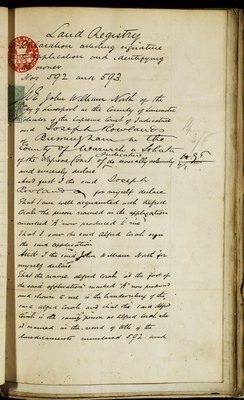 Land Registry
Declaration attesting signature
to application and identifying
owner
Nos 592 and 593.
We John William North of the
City of Liverpool in the County of Lancaster
Solicitor of the Supreme Court of Judicature
and Joseph Rowlands
Birmingham in the
County of Warwick a Solicitor
of the Supreme Court of Judicature do severally solemnly
and sincerely declare
And first I the said Joseph
Rowlands for myself declare
That I am well acquainted with Alfred
the person named in the application
marked A now produced to me
That I saw the said Alfred sign
the said application
And I the said John William North for
myself declare
That the name Alfred at the foot of
the said application marked A now produced
and shown to me is the handwriting of the
said Alfred and that the said Alfred
is the same person as Alfred who
is named in the record of title of the
numbered 592 and